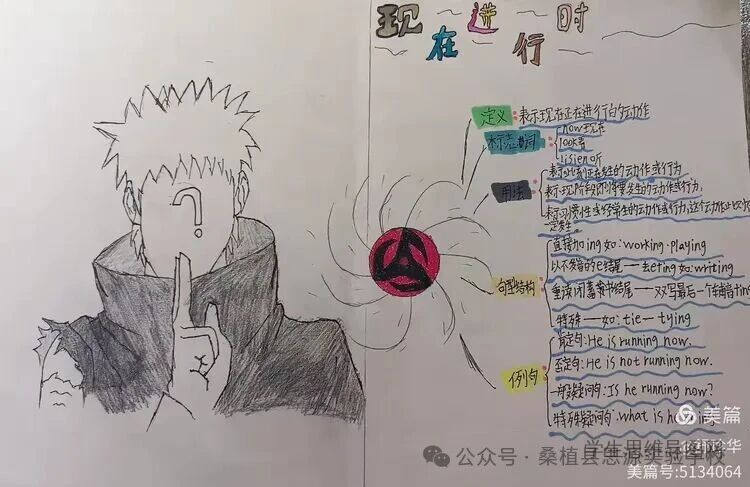 现在进行时
?
定义:表示现在正在进行的动作
标志词
now现在
look看
lisien听
用法
表示此刻正在发生的动作或行为
表示现阶段即将要发生的动作或行为,
表示习惯性或经常性的动作或行为,这个动作此刻不
一定发生。
句型结构
直接加ing如:working.playing
以不发音的e结尾——去eting如:writing
重读闭音节结尾——双写最后一个辅音ting
特殊——如:tie—tying
例句
肯定句:He is running now.
否定句:He is not running now.
一般疑问句:Is he running now?
特殊疑问句:what is he
美篇
学生思维导图
公众号·桑植县思源实验学校
美篇号:5134064